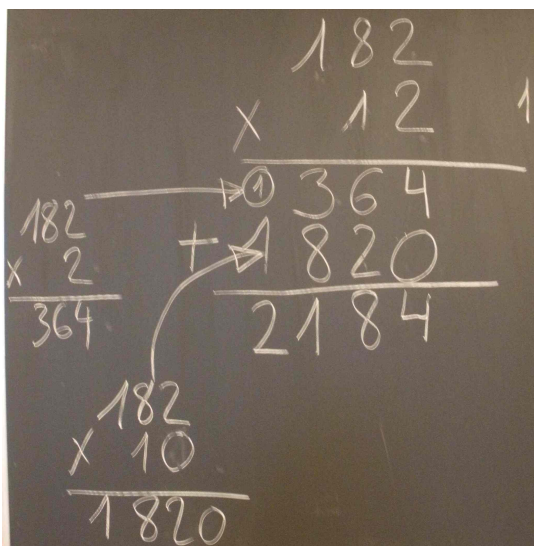 182
× 12
① 364
+ 1820
2184
182
× 2
364
182
× 10
1820
1